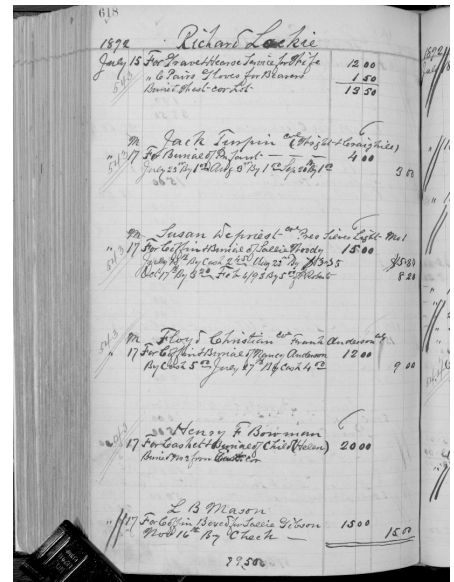 618
1892 Richard Lockie
July 15 For Grave & Hearse Service for Wife 12 00
" 6 Pairs Gloves for Bearers 1 50
Buried West cor Lot 13 50
M Jack Turpin col (Wright & Craighill)
" 17 For Burial of Infant 4 00
July 25 By 1 00 Aug 9 By 1 00 Sep 20 By 1 00 3 00
M Susan Depriest col Pres Silver Light
" 17 For Coffin & Burial of Sallie Woody 15 00
By Cash 2 450 Aug 23 By
Oct 17th By 8 20
M Floyd Christian col Frank Anderson col
" 17 For Coffin & Burial of Nancy Anderson 12 00
By Cash 5 00 July 27th By Cash 4 00 9 00
Henry F Bowman
17 For Casket & Burial of Child (Helen) 20 00
Buried from
L B Mason
" 17 For Coffin Boxed for Sallie Gibson 15 00
Nov 16th By Check 15 00